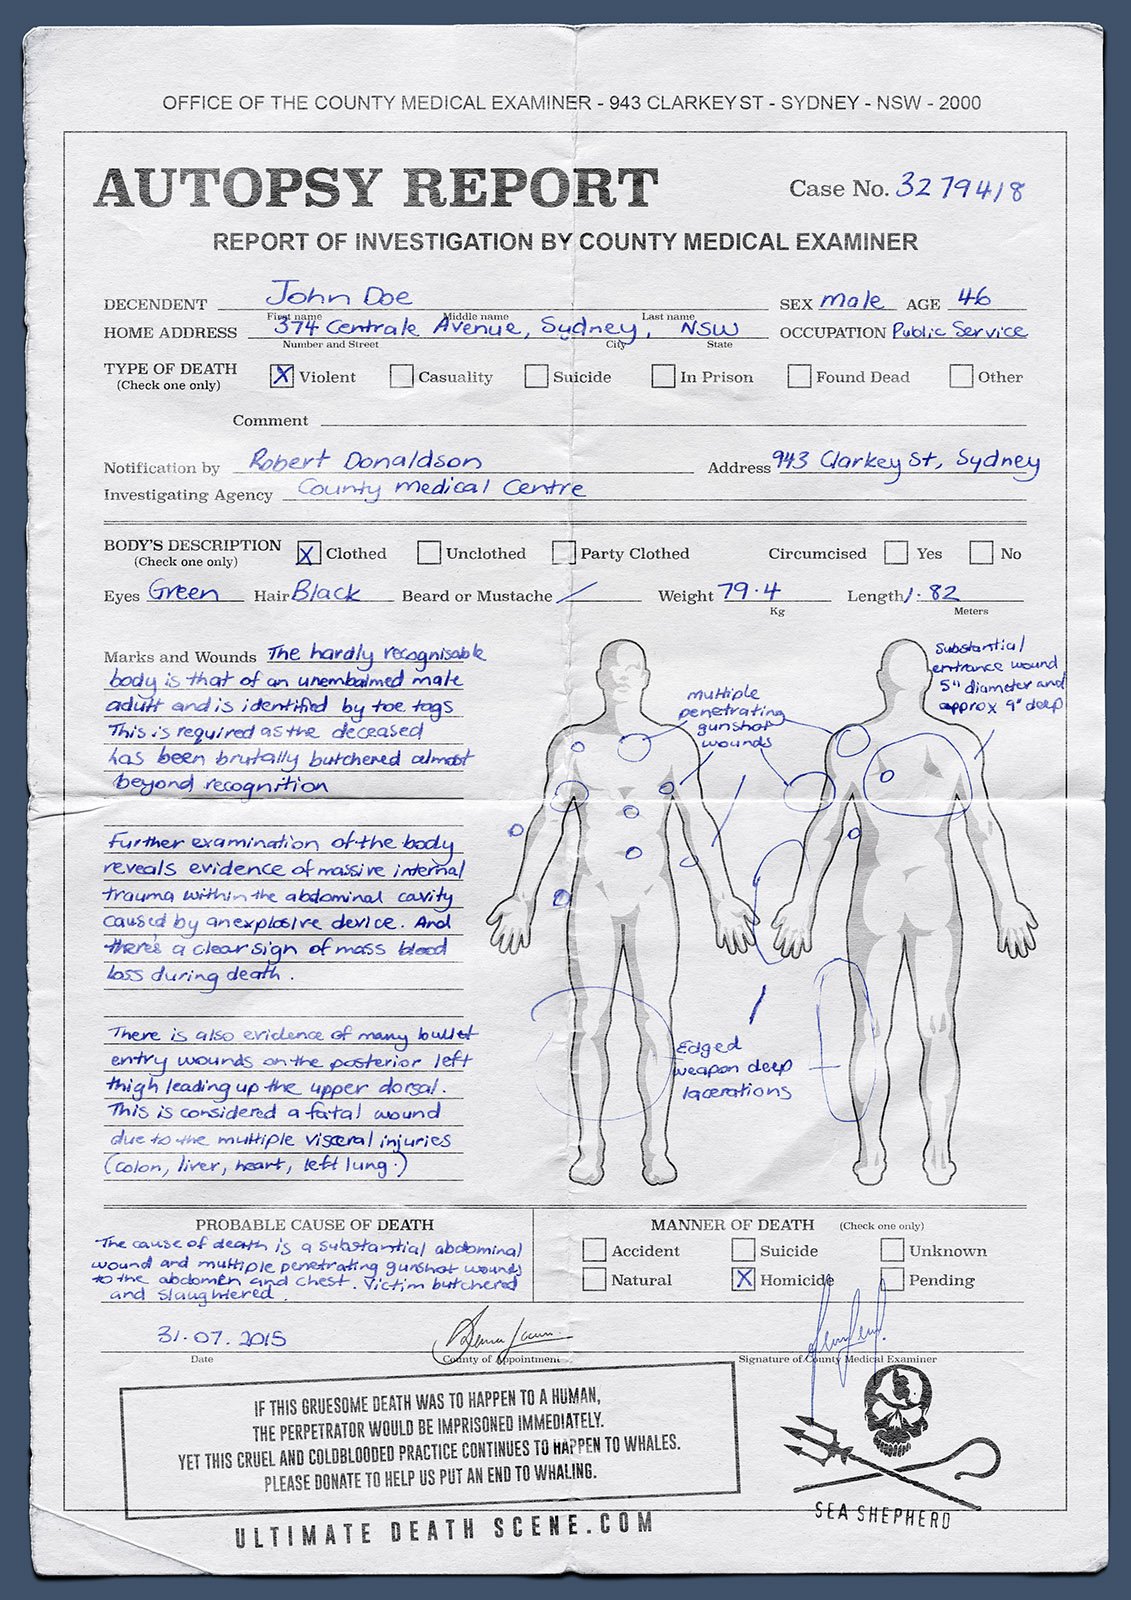 OFFICE OF THE COUNTY MEDICAL EXAMINER - 943 CLARKEY ST - SYDNEY - NSW - 2000
AUTOPSY REPORT
Case No. 3279418
REPORT OF INVESTIGATION BY COUNTY MEDICAL EXAMINER
DECENDENT John Doe SEX male AGE 46
First name Middle name Last name
HOME ADDRESS 374 Centrale Avenue, Sydney, NSW OCCUPATION Public Service
Number and Street City State
TYPE OF DEATH X Violent Casuality Suicide In Prison Found Dead Other
(Check one only)
Comment
Notification by Robert Donaldson Address 943 Clarkey St, Sydney
Investigating Agency County Medical Centre
BODY'S DESCRIPTION X Clothed Unclothed Party Clothed Circumcised Yes No
(Check one only)
Eyes Green Hair Black Beard or Mustache / Weight 79.4 Length 1.82
Kg Meters
Marks and Wounds The hardly recognisable
body is that of an unembalmed male
adult and is identified by toe tags
This is required as the deceased
has been brutally butchered almost
beyond recognition
Further examination of the body
reveals evidence of massive internal
trauma within the abdominal cavity
caused by an explosive device. And
there's a clear sign of mass blood
loss during death.
There is also evidence of many bullet
entry wounds on the posterior left
thigh leading up the upper dorsal.
This is considered a fatal wound
due to the multiple visceral injuries
(colon, liver, heart, left lung.)
multiple
penetrating
gunshot
wounds
Substantial
entrance wound
5" diameter and
approx 9" deep
Edged
weapon deep
lacerations
PROBABLE CAUSE OF DEATH
The cause of death is a substantial abdominal
wound and multiple penetrating gunshot wounds
to the abdomen and chest. Victim butchered
and slaughtered.
MANNER OF DEATH (Check one only)
Accident Suicide Unknown
Natural X Homicide Pending
31.07.2015
Date County of Appointment Signature of County Medical Examiner
IF THIS GRUESOME DEATH WAS TO HAPPEN TO A HUMAN,
THE PERPETRATOR WOULD BE IMPRISONED IMMEDIATELY.
YET THIS CRUEL AND COLDBLOODED PRACTICE CONTINUES TO HAPPEN TO WHALES.
PLEASE DONATE TO HELP US PUT AN END TO WHALING.
ULTIMATE DEATH SCENE.COM
SEA SHEPHERD